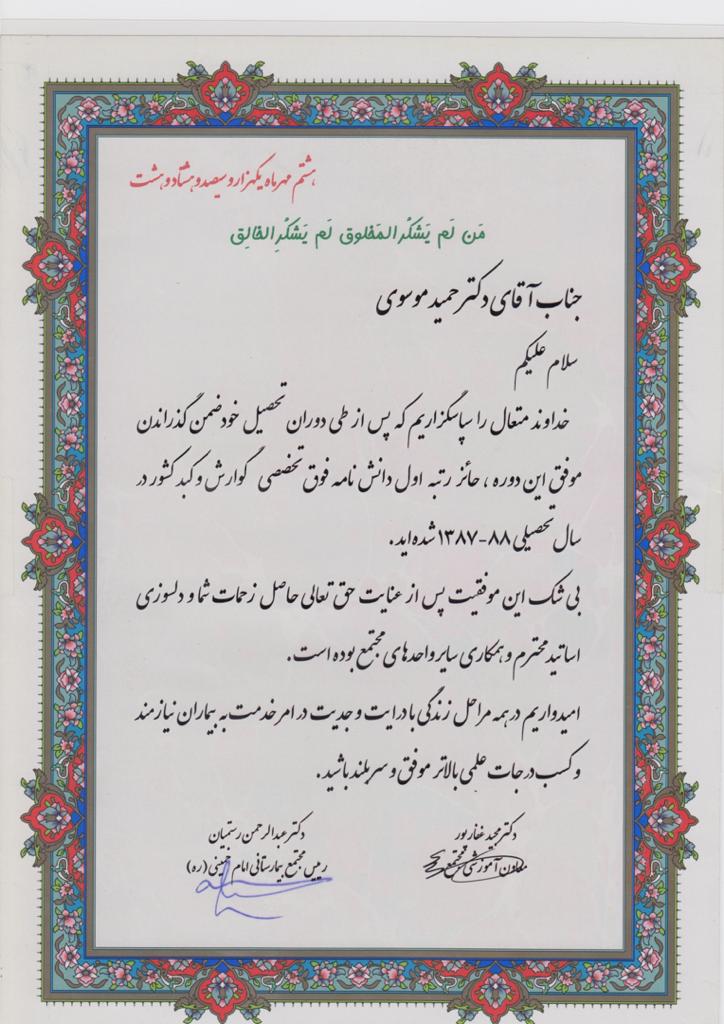 هشتم مهرماه یکهزار و سیصد و هشتاد و هشت
مَن لَم یَشکُر المَخلوق لَم یَشکُرِ الخالِق
جناب آقای دکتر حمید موسوی
سلام علیکم
خداوند متعال را سپاسگزاریم که پس از طی دوران تحصیل خود ضمن گذراندن
موفق این دوره ، حائز رتبه اول دانش نامه فوق تخصصی گوارش و کبد کشور در
سال تحصیلی ۸۸-۱۳۸۷ شده اید .
بی شک این موفقیت پس از عنایت حق تعالی حاصل زحمات شما و دلسوزی
اساتید محترم و همکاری سایر واحدهای مجتمع بوده است .
امیدواریم در همه مراحل زندگی با درایت و جدیت در امر خدمت به بیماران نیازمند
و کسب درجات علمی بالاتر موفق و سربلند باشید .
دکتر مجید غفارپور
معاون آموزشی مجتمع
دکتر عبدالرحمن رستمیان
رییس مجتمع بیمارستانی امام خمینی (ره)